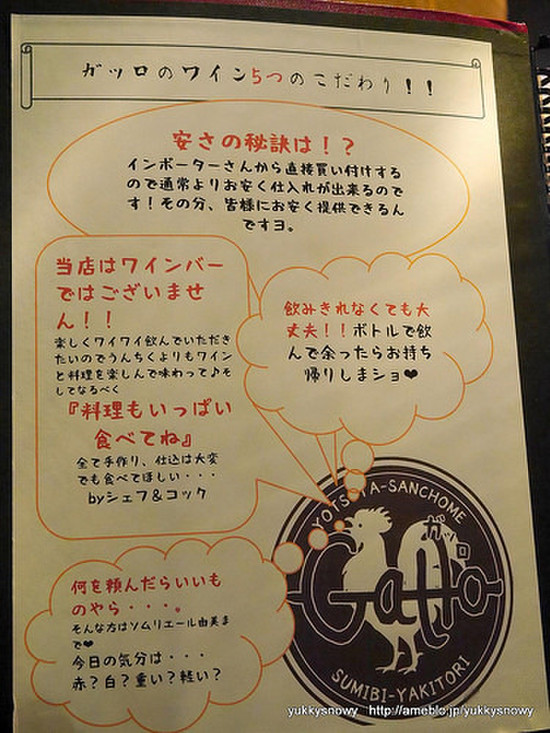 ガッロのワイン5つのこだわり！！
安さの秘訣は！？
インポーターさんから直接買い付けする
ので通常よりお安く仕入れが出来るので
す！その分、皆様にお安く提供できるん
ですヨ。
当店はワインバー
ではございませ
ん！！
楽しくワイワイ飲んでいただき
たいのでうんちくよりもワイン
と料理を楽しんで味わって♪そ
してなるべく
『料理もいっぱい
食べてね』
全て手作り、仕込は大変
でも食べてほしい・・・
byシェフ＆コック
飲みきれなくても大
丈夫！！ボトルで飲
んで余ったらお持ち
帰りしまショ❤
何を頼んだらいいも
のやら・・・。
そんな方はソムリエール由美ま
で❤
今日の気分は・・・
赤？白？重い？軽い？
YOTSUYA-SANCHOME
ガッロ
Gallo
SUMIBI-YAKITORI
yukkysnowy http://ameblo.jp/yukkysnowy